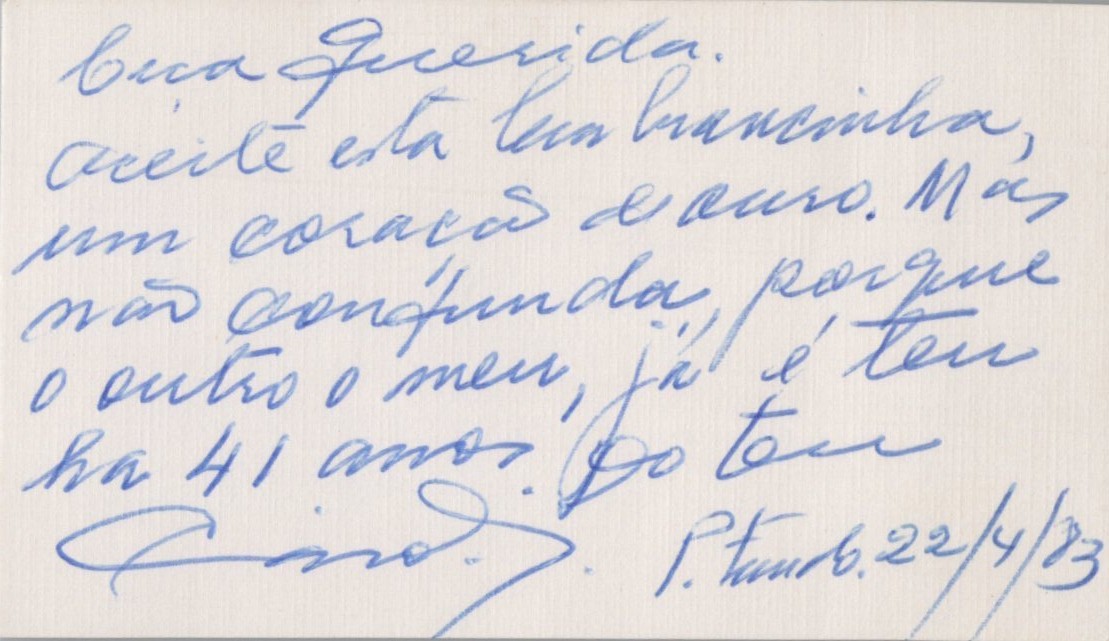 querida.
aceite esta lembrancinha,
um coração de ouro. Mas
não confunda, porque
o outro o meu, já é teu
ha 41 anos. Do teu
22/4/83